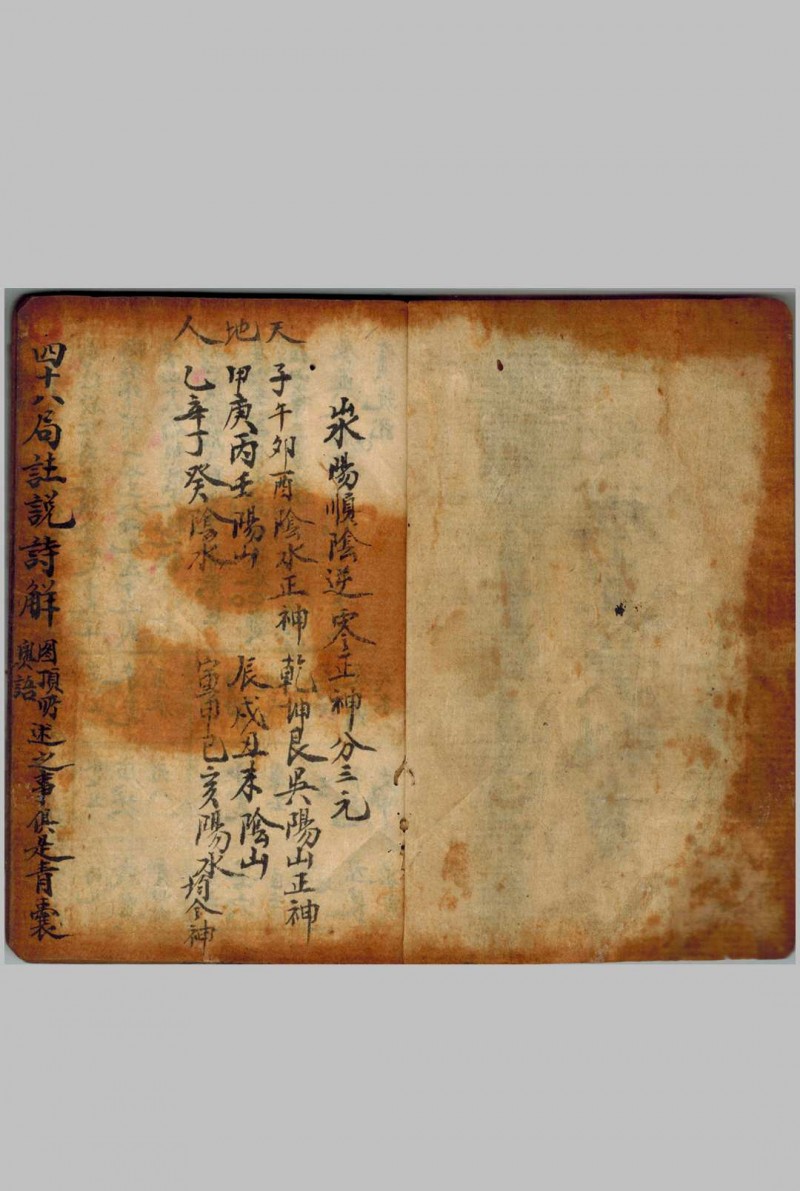 山水陽順陰逆零正神分三元
天地人
子午夘酉陰水正神 乾坤艮吳陽山正神
甲庚丙壬陽山 辰戌丑未陰山
乙辛丁癸陰水 寅申巳亥陽水 神
四十八局註説詩解 图頂所述之事俱是青囊
奥語